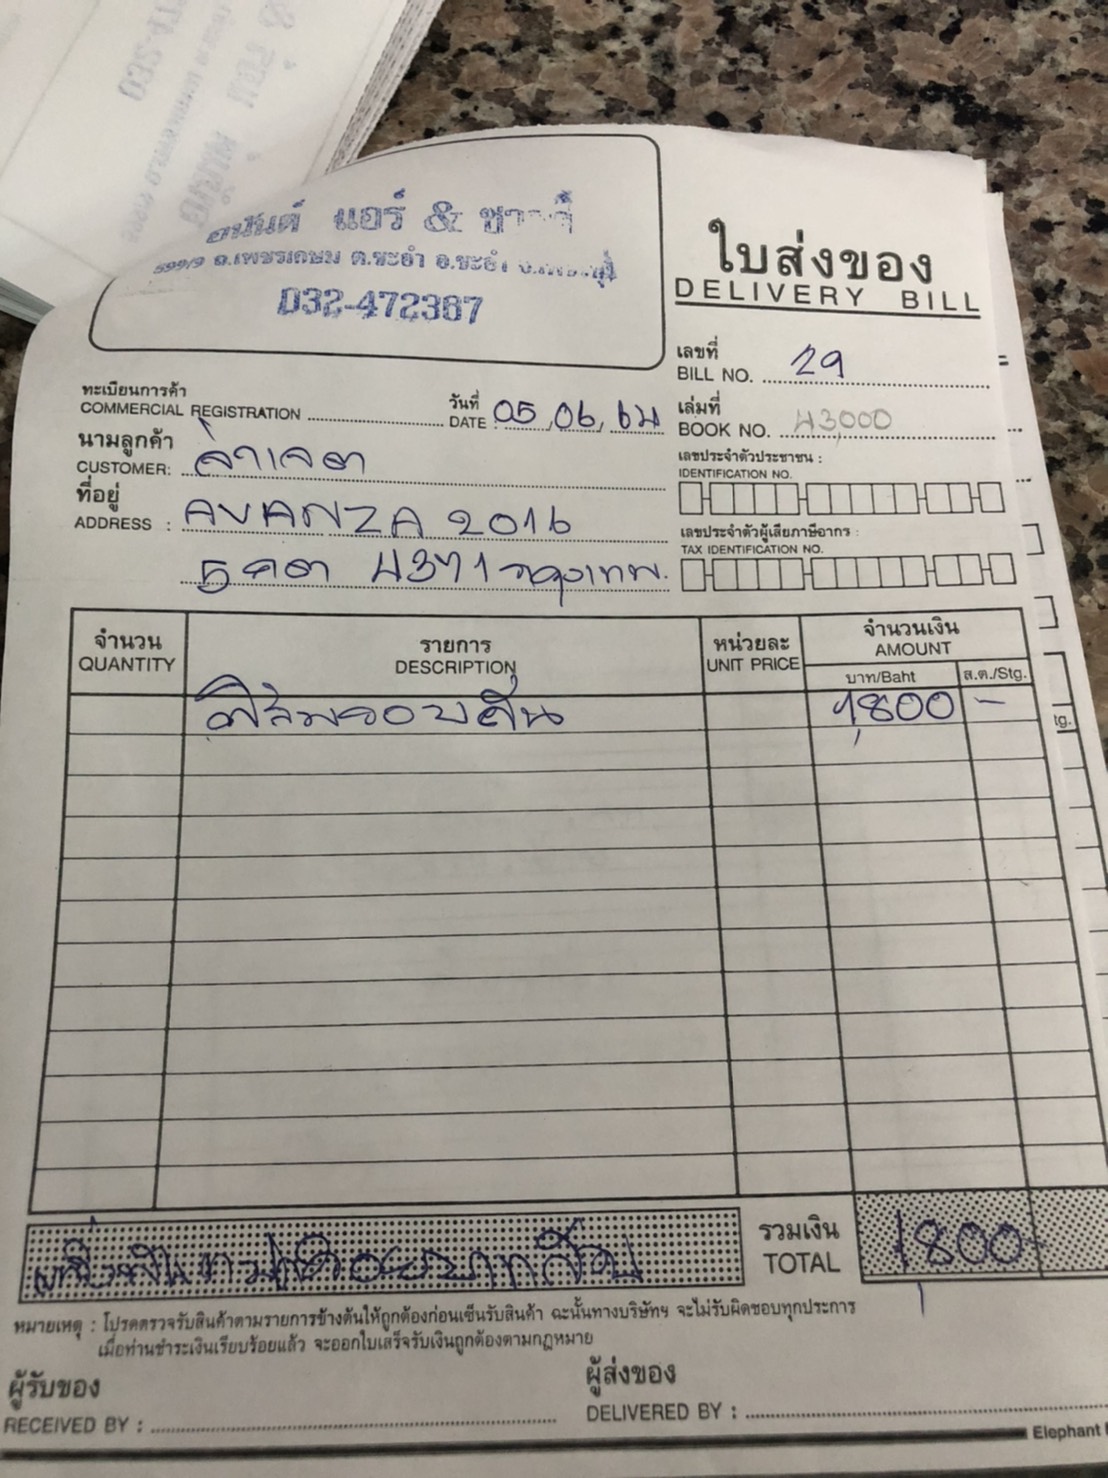 แอร์ &
ถ.เพชรเกษม ต.ชะอำ อ.ชะอำ
032-472387
ใบส่งของ
DELIVERY BILL
เลขที่
BILL NO. 29
ทะเบียนการค้า
COMMERCIAL REGISTRATION
วันที่
DATE 05,06,62
เล่มที่
BOOK NO. 43,000
นามลูกค้า
CUSTOMER:
เลขประจำตัวประชาชน :
IDENTIFICATION NO.
ที่อยู่
ADDRESS : AVANZA 2016
เลขประจำตัวผู้เสียภาษีอากร :
TAX IDENTIFICATION NO.
4371 กรุงเทพ.
จำนวน
QUANTITY
รายการ
DESCRIPTION
หน่วยละ
UNIT PRICE
จำนวนเงิน
AMOUNT
บาท/Baht
ส.ต./Stg.
ฟิล์มรอบคัน 1,800 -
รวมเงิน
TOTAL
1,800
หมายเหตุ : โปรดตรวจรับสินค้าตามรายการข้างต้นให้ถูกต้องก่อนเซ็นรับสินค้า ฉะนั้นทางบริษัทฯ จะไม่รับผิดชอบทุกประการ
เมื่อท่านชำระเงินเรียบร้อยแล้ว จะออกใบเสร็จรับเงินถูกต้องตามกฎหมาย
ผู้รับของ
RECEIVED BY :
ผู้ส่งของ
DELIVERED BY :
Elephant